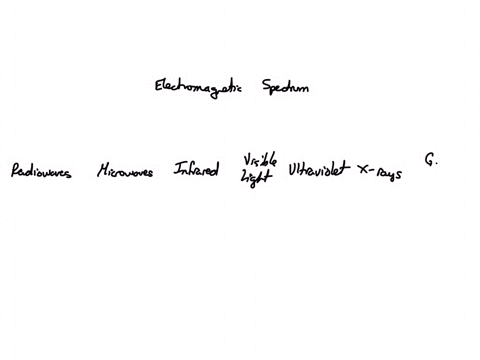 Electromagnetic Spectrum
Radiowaves Microwaves Infrared Visible Light Ultraviolet X-rays G.